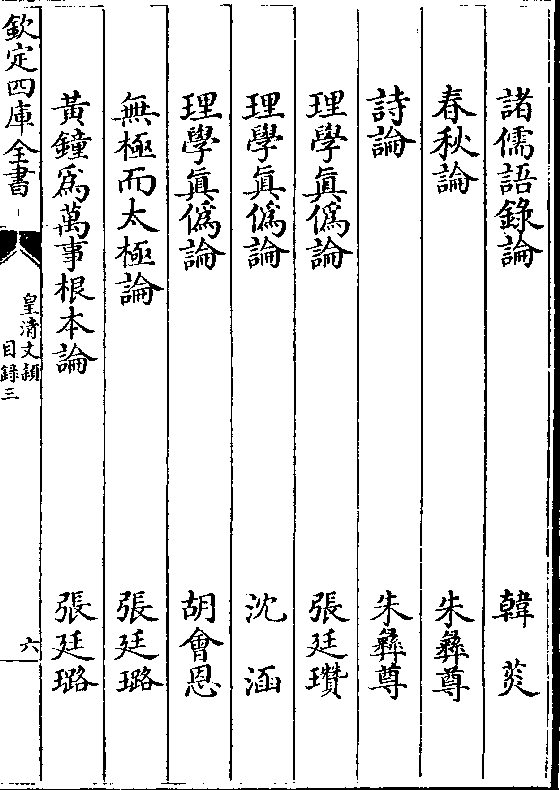 諸儒語錄論 韓菼
春秋論 朱彝尊
詩論 朱彝尊
理學眞僞論 張廷瓚
理學眞僞論 沈涵
理學眞僞論 胡會恩
無極而太極論 張廷璐
黃鐘爲萬事根本論 張廷璐
欽定四庫全書
皇清文穎
目錄三
六